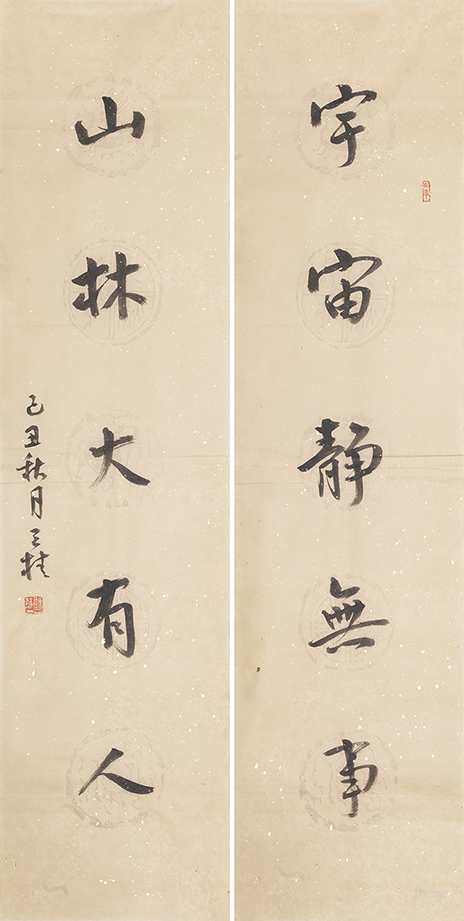 宇宙靜無事
山林大有人
己丑秋月王樹